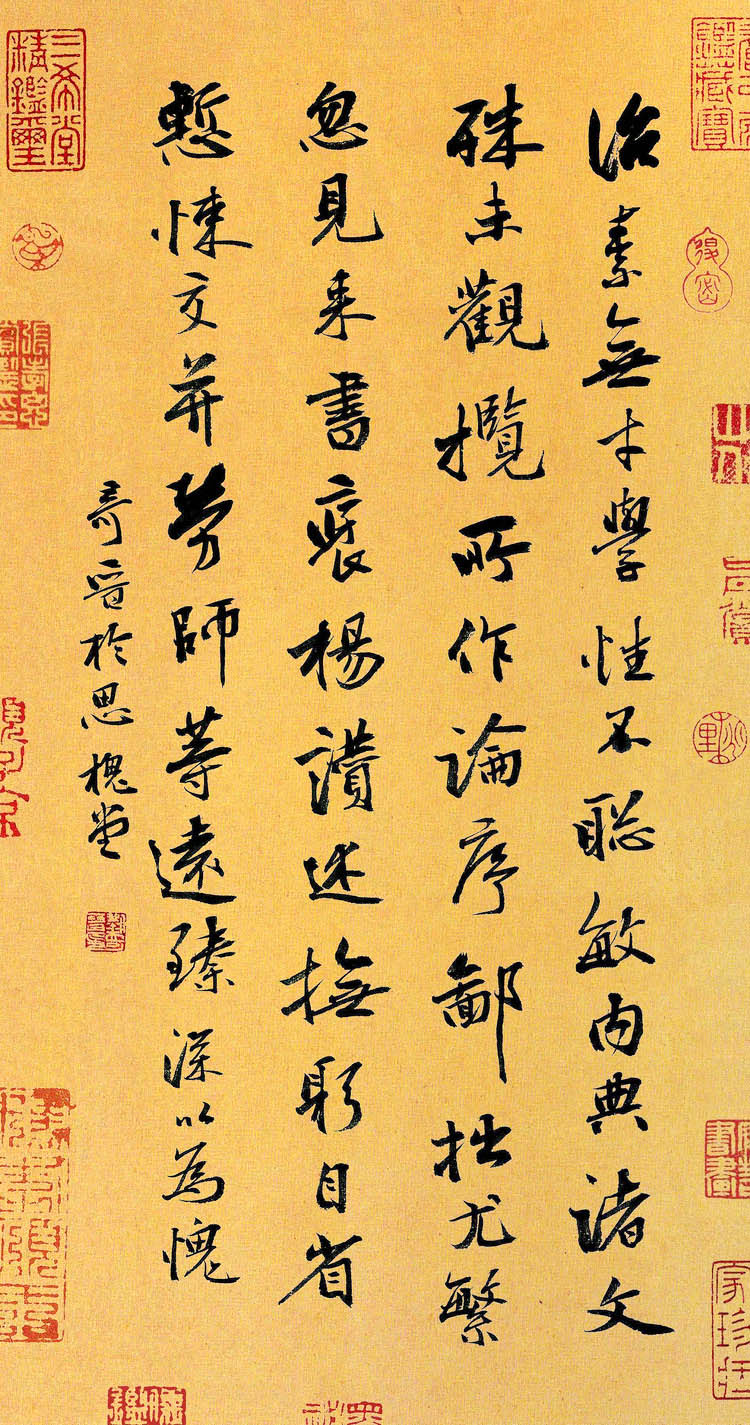 鑑藏寶
治素無才學性不聰敏內典諸文
殊未觀攬所作論序鄙拙尤繁
忽見來書褒楊讚述撫躬自省
慙悚交并勞師等遠臻深以為愧
奇晉於思槐堂
三希堂
精鑑璽